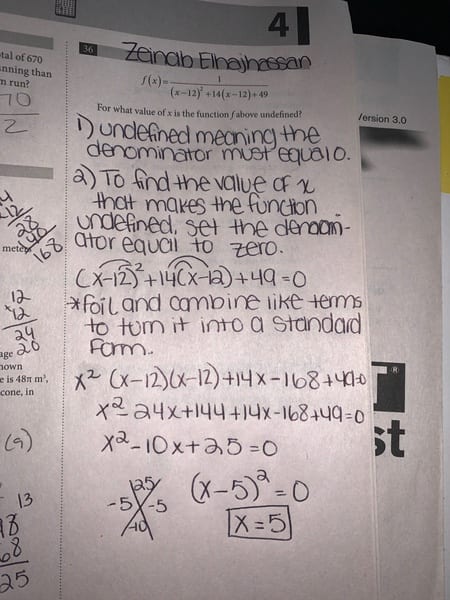 4
36
Zeinab Elhajhassan
f(x)= 1
(x−12)²+14(x−12)+49
For what value of x is the function f above undefined?
1) undefined meaning the
denominator must equal 0.
2) To find the value of x
that makes the function
undefined, set the denom-
ator equal to zero.
(x-12)²+14(x-12)+49=0
*foil and combine like terms
to turn it into a standard
form.
x² (x-12)(x-12)+14x-168+49=0
x²-24x+144+14x-168+49=0
x²-10x+25=0
25
-5 -5
-10
(x-5)²=0
x=5
tal of 670
nning than
n run?
70
2
12
28
168
meters
12
x12
24
20
age
nown
e is 48π m³,
cone, in
(9)
13
18
68
25
Version 3.0
T®
st